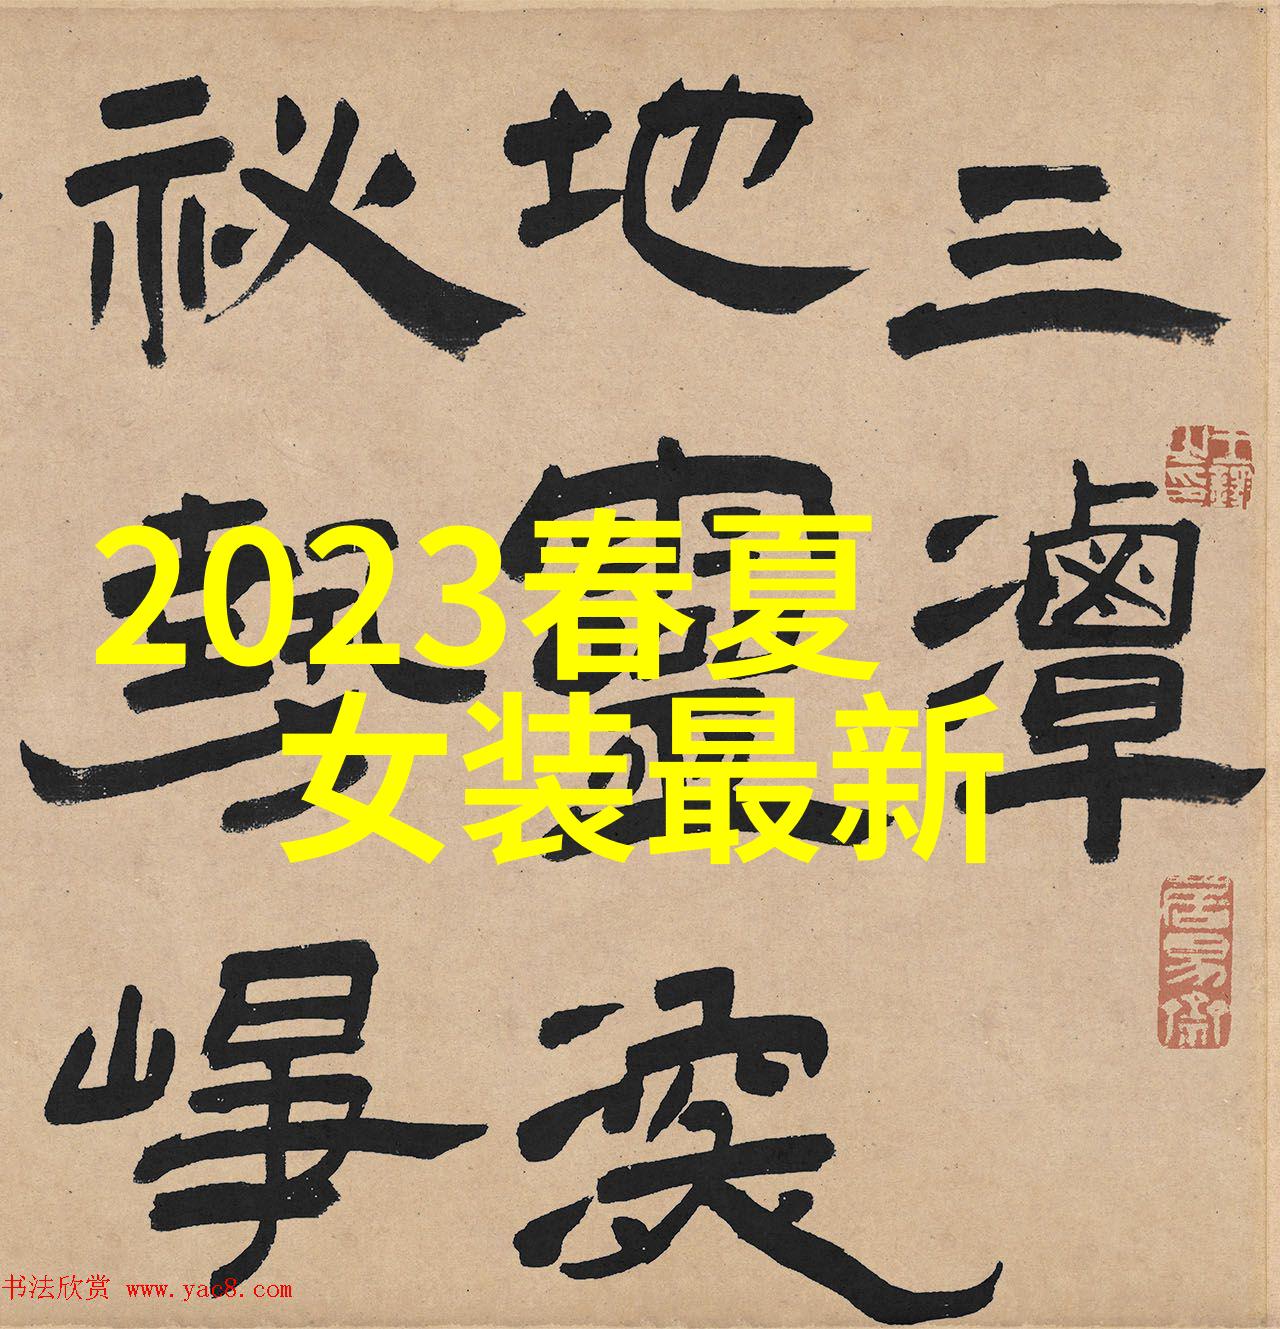 三潭
地靈
祕勢崢
2023春夏
女装最新
书法欣赏 www.yac8.com